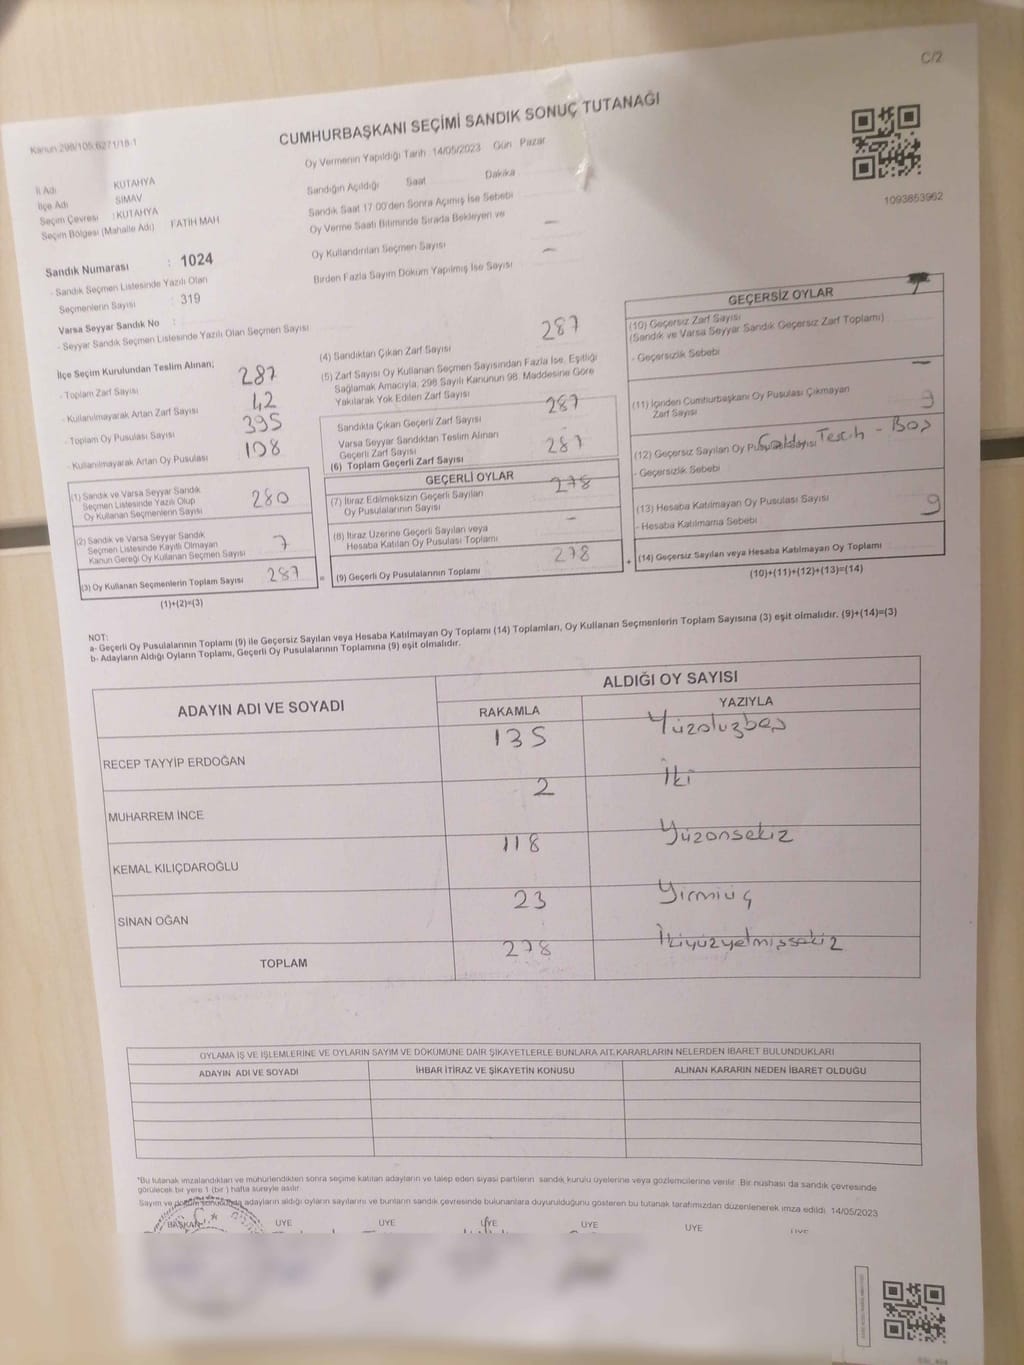 C/2
Kanun:298/105;6271/18-1
CUMHURBAŞKANI SEÇİMİ SANDIK SONUÇ TUTANAĞI
1093853962
İl Adı KUTAHYA
İlçe Adı SIMAV
Seçim Çevresi : KUTAHYA
Seçim Bölgesi (Mahalle Adı) FATIH MAH
Sandık Numarası : 1024
- Sandık Seçmen Listesinde Yazılı Olan
Seçmenlerin Sayısı : 319
Varsa Seyyar Sandık No :
- Seyyar Sandık Seçmen Listesinde Yazılı Olan Seçmen Sayısı
Oy Vermenin Yapıldığı Tarih :14/05/2023 Gün Pazar
Sandığın Açıldığı Saat Dakika
Sandık Saat 17:00'den Sonra Açımış İse Sebebi
Oy Verme Saati Bitiminde Sırada Bekleyen ve
Oy Kullandırılan Seçmen Sayısı —
Birden Fazla Sayım Döküm Yapılmış İse Sayısı —
İlçe Seçim Kurulundan Teslim Alınan;
- Toplam Zarf Sayısı 287
- Kullanılmayarak Artan Zarf Sayısı 42
- Toplam Oy Pusulası Sayısı 395
- Kullanılmayarak Artan Oy Pusulası 108
(1) Sandık ve Varsa Seyyar Sandık
Seçmen Listesinde Yazılı Olup
Oy Kullanan Seçmenlerin Sayısı 280
(2) Sandık ve Varsa Seyyar Sandık
Seçmen Listesinde Kayıtlı Olmayan
Kanun Gereği Oy Kullanan Seçmen Sayısı 7
(3) Oy Kullanan Seçmenlerin Toplam Sayısı 287
(1)+(2)=(3)
(4) Sandıktan Çıkan Zarf Sayısı 287
(5) Zarf Sayısı Oy Kullanan Seçmen Sayısından Fazla İse, Eşitliği
Sağlamak Amacıyla, 298 Sayılı Kanunun 98. Maddesine Göre
Yakılarak Yok Edilen Zarf Sayısı
Sandıkta Çıkan Geçerli Zarf Sayısı 287
Varsa Seyyar Sandıktan Teslim Alınan
Geçerli Zarf Sayısı
(6) Toplam Geçerli Zarf Sayısı 287
GEÇERLİ OYLAR
(7) İtiraz Edilmeksizin Geçerli Sayılan
Oy Pusulalarının Sayısı 278
(8) İtiraz Üzerine Geçerli Sayılan veya
Hesaba Katılan Oy Pusulası Toplamı —
= (9) Geçerli Oy Pusulalarının Toplamı 278
GEÇERSİZ OYLAR
(10) Geçersiz Zarf Sayısı
(Sandık ve Varsa Seyyar Sandık Geçersiz Zarf Toplamı)
- Geçersizlik Sebebi
(11) İçinden Cumhurbaşkanı Oy Pusulası Çıkmayan —
Zarf Sayısı
(12) Geçersiz Sayılan Oy Pusulası Sayısı 9
- Geçersizlik Sebebi Tercih - Boş
(13) Hesaba Katılmayan Oy Pusulası Sayısı
- Hesaba Katılmama Sebebi
+ (14) Geçersiz Sayılan veya Hesaba Katılmayan Oy Toplamı 9
(10)+(11)+(12)+(13)=(14)
NOT:
a- Geçerli Oy Pusulalarının Toplamı (9) ile Geçersiz Sayılan veya Hesaba Katılmayan Oy Toplamı (14) Toplamları, Oy Kullanan Seçmenlerin Toplam Sayısına (3) eşit olmalıdır. (9)+(14)=(3)
b- Adayların Aldığı Oyların Toplamı, Geçerli Oy Pusulalarının Toplamına (9) eşit olmalıdır.
ADAYIN ADI VE SOYADI ALDIĞI OY SAYISI
RAKAMLA YAZIYLA
RECEP TAYYİP ERDOĞAN 135 Yüzotuzbeş
MUHARREM İNCE 2 İki
KEMAL KILIÇDAROĞLU 118 Yüzonsekiz
SİNAN OĞAN 23 Yirmiüç
TOPLAM 278 İkiyüzyetmişsekiz
OYLAMA İŞ VE İŞLEMLERİNE VE OYLARIN SAYIM VE DÖKÜMÜNE DAİR ŞİKAYETLERLE BUNLARA AİT KARARLARIN NELERDEN İBARET BULUNDUKLARI
ADAYIN ADI VE SOYADI İHBAR İTİRAZ VE ŞİKAYETİN KONUSU ALINAN KARARIN NEDEN İBARET OLDUĞU
*Bu tutanak imzalandıktan ve mühürlendikten sonra seçime katılan adayların ve talep eden siyasi partilerin sandık kurulu üyelerine veya gözlemcilerine verilir. Bir nüshası da sandık çevresinde
görülecek bir yere 1 (bir ) hafta süreyle asılır.
Sayım ve döküm sonucunda adayların aldığı oyların sayılarını ve bunların sandık çevresinde bulunanlara duyurulduğunu gösteren bu tutanak tarafımızdan düzenlenerek imza edildi. 14/05/2023
BAŞKAN ÜYE ÜYE ÜYE ÜYE ÜYE ÜYE